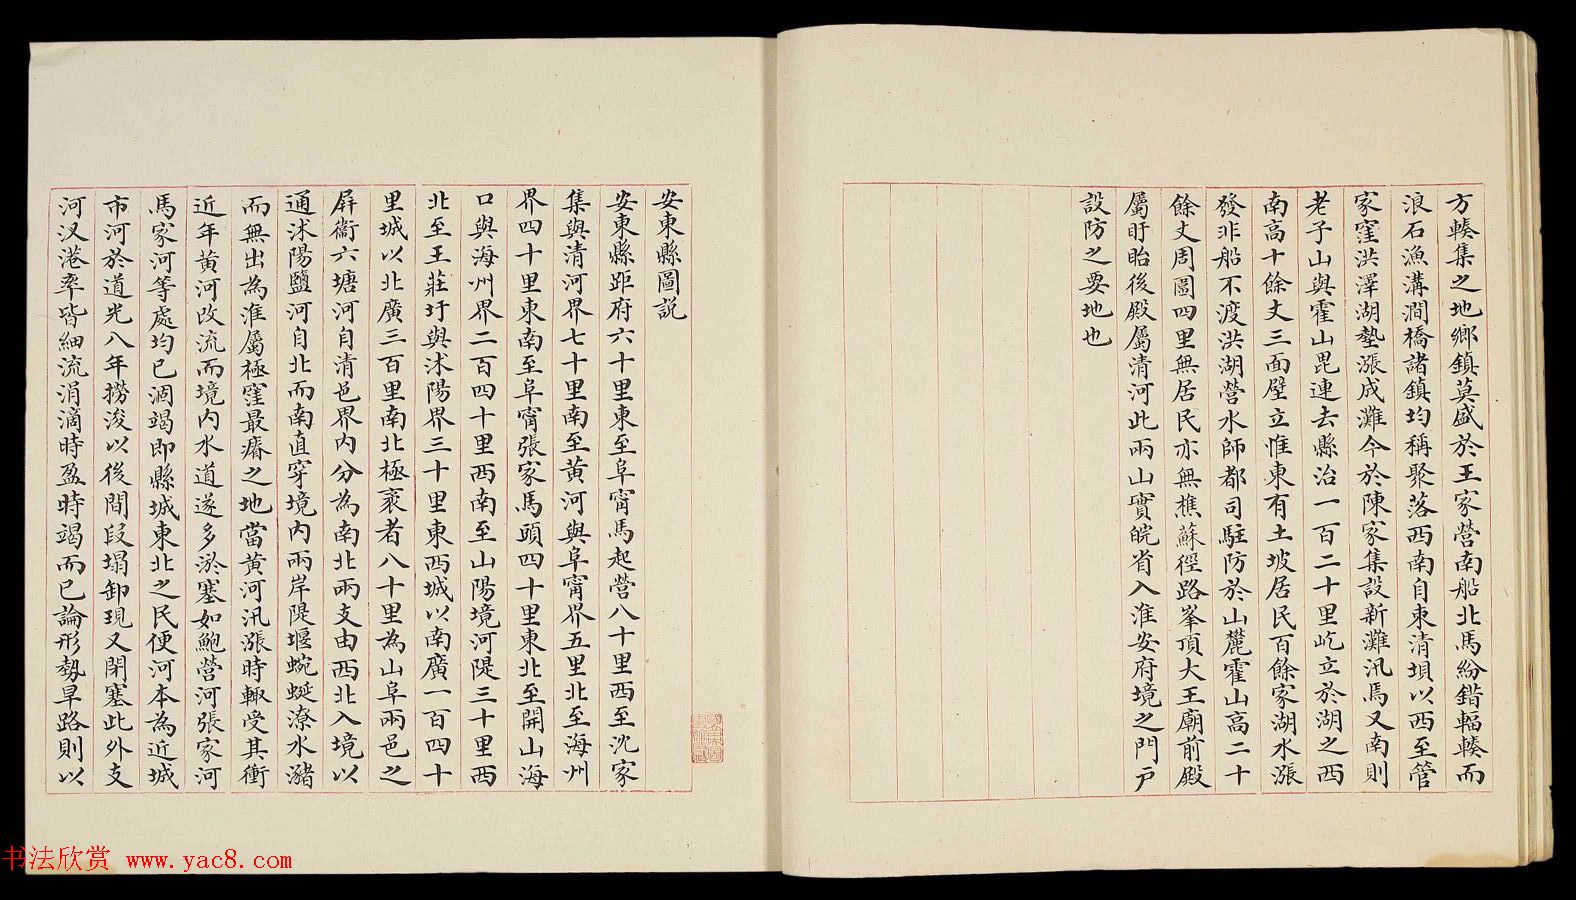 方輳集之地鄉鎮莫盛於王家營南船北馬紛錯輻輳而
浪石漁溝澗橋諸鎮均稱聚落西南自東清壩以西至管
家窪洪澤湖墊漲成灘今於陳家集設新灘汛焉又南則
老子山與霍山毘連去縣治一百二十里屹立於湖之西
南高十餘丈三面壁立惟東有土坡居民百餘家湖水漲
發非船不渡洪湖營水師都司駐防於山麓霍山高二十
餘丈周圍四里無居民亦無樵蘇徑路峯頂大王廟前殿
屬盱眙後殿屬清河此兩山實皖省入淮安府境之門戶
設防之要地也
安東縣圖説
安東縣距府六十里東至阜甯馬起營八十里西至沈家
集與清河界七十里南至黃河與阜甯界五里北至海州
界四十里東南至阜甯張家馬頭四十里東北至開山海
口與海州界二百四十里西南至山陽境河隄三十里西
北至王莊圩與沭陽界三十里東西城以南廣一百四十
里城以北廣三百里南北極袤者八十里為山阜兩邑之
屏衞六塘河自清邑界內分為南北兩支由西北入境以
通沭陽鹽河自北而南直穿境內兩岸隄堰蜿蜒潦水瀦
而無出為淮屬極窪最瘠之地當黃河汛漲時輙受其衝
近年黃河改流而境內水道遂多淤塞如鮑營河張家河
馬家河等處均已涸竭即縣城東北之民便河本為近城
市河於道光八年撈浚以後間段塌卸現又閉塞此外支
河汊港率皆細流涓滴時盈時竭而已論形勢旱路則以
书法欣赏 www.yac8.com